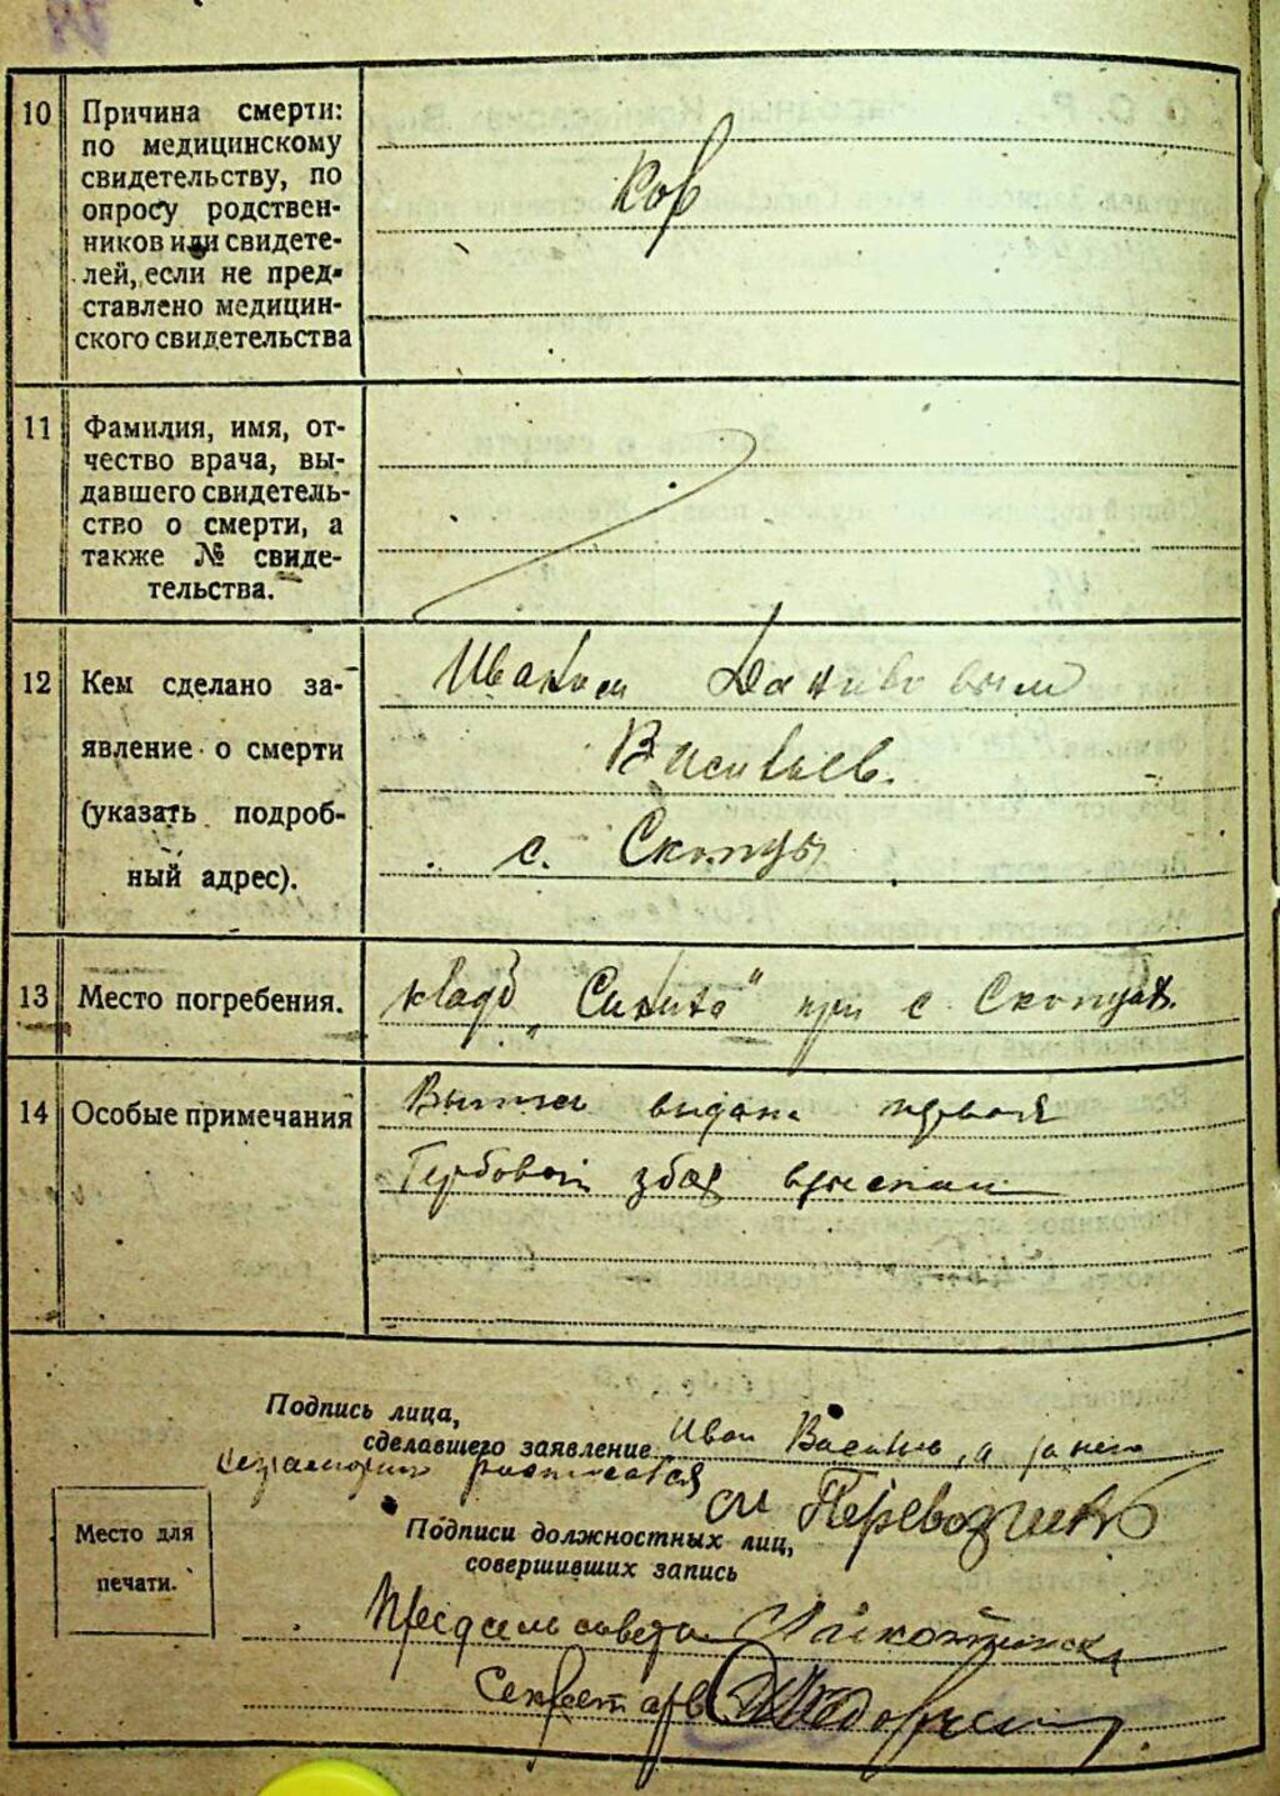 10 Причина смерти:
по медицинскому
свидетельству, по
опросу родствен-
ников или свидете-
лей, если не пред-
ставлено медицин-
ского свидетельства
Кор
11 Фамилия, имя, от-
чество врача, вы-
давшего свидетель-
ство о смерти, а
также № свиде-
тельства.
12 Кем сделано за-
явление о смерти
(указать подроб-
ный адрес).
Иваном
Васильев.
с. Скопцы
13 Место погребения.
кладб „ " при с. Скопцах.
14 Особые примечания
выдана первая
Гербовой збор взыскан
Подпись лица,
сделавшего заявление Иван Васильев, а за него
неграмотн расписался
Подписи должностных лиц,
совершивших запись
Место для
печати.
Предсельсовета
Секретарь